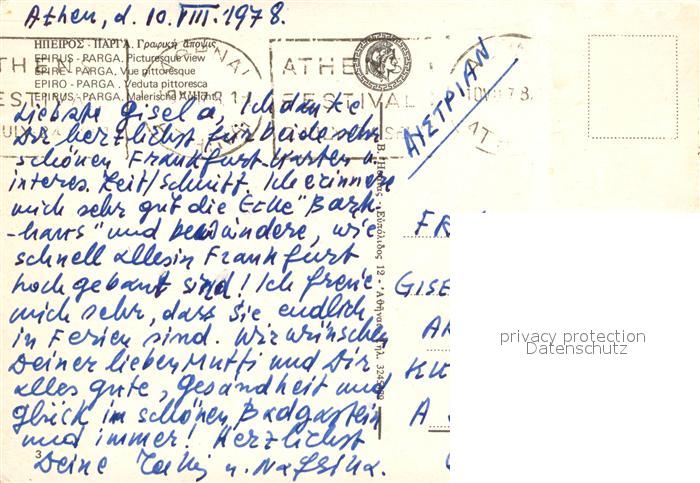 Athen, d. 10.VIII.1978.
ΗΠΕΙΡΟΣ - ΠΑΡΓΑ. Γραφική άποψις
EPIRUS - PARGA. Picturesque view
EPIRE - PARGA. Vue pittoresque
EPIRO - PARGA. Veduta pittoresca
EPIRUS - PARGA. Malerische Ansicht
ATHEN
FESTIVAL
Liebste Gisela, Ich danke
Dir herzlichst für beide sehr
schönen Frankfurt-Karten
interes. Zeit/Schnitt. Ich erinnere
mich sehr gut die Ecke "Bach
-haus" und bewundere, wie
schnell alles in Frankfurt
hochgebaut sind! Ich freue
mich sehr, dass Sie endlich
in Ferien sind. Wir wünschen
Deiner lieben Mutti und Dir
alles gute, Gesundheit und
glück im schönen Badgastein
und immer! Herzlichst
Deine u.
3
ΑΥΣΤΡΙΑΝ
FR
GISE
A
privacy protection
Datenschutz